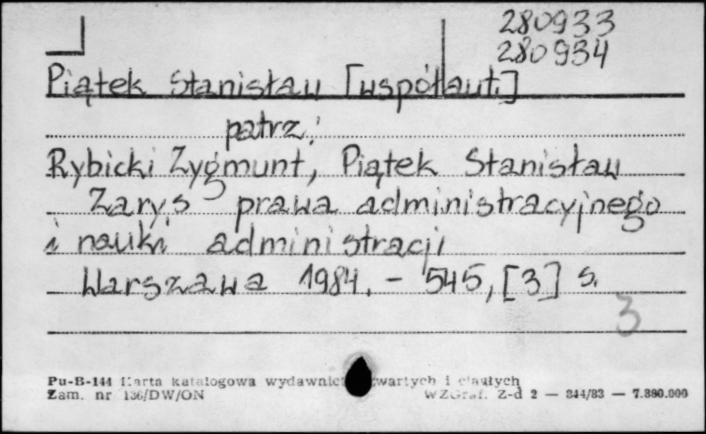 280933
280934
Piątek Stanisław [współaut.]
patrz:
Rybicki Zygmunt, Piątek Stanisław
Zarys prawa administracyjnego
i nauki administracji
Warszawa 1984. - 545, [3] s.
3
Pu-B-144 Karta katalogowa wydawnict zwartych i ciągłych
Zam. nr 136/DW/ON WZGraf. Z-d 2 — 344/83 — 7.380.000